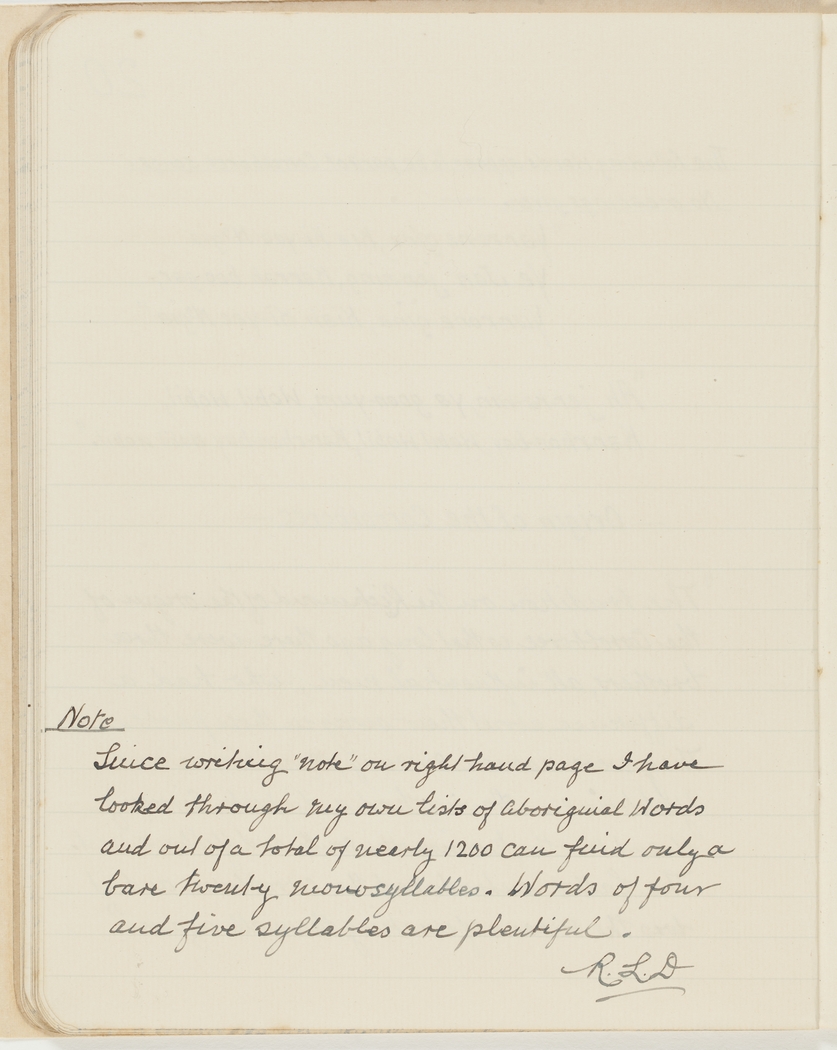 Note
Since writing "note" on right hand page I have
looked through my own lists of Aboriginial Words
and out of a total of nearly 1200 can find only a
bare twenty monosyllables. Words of four
and five syllables are plentiful.
R.L.D